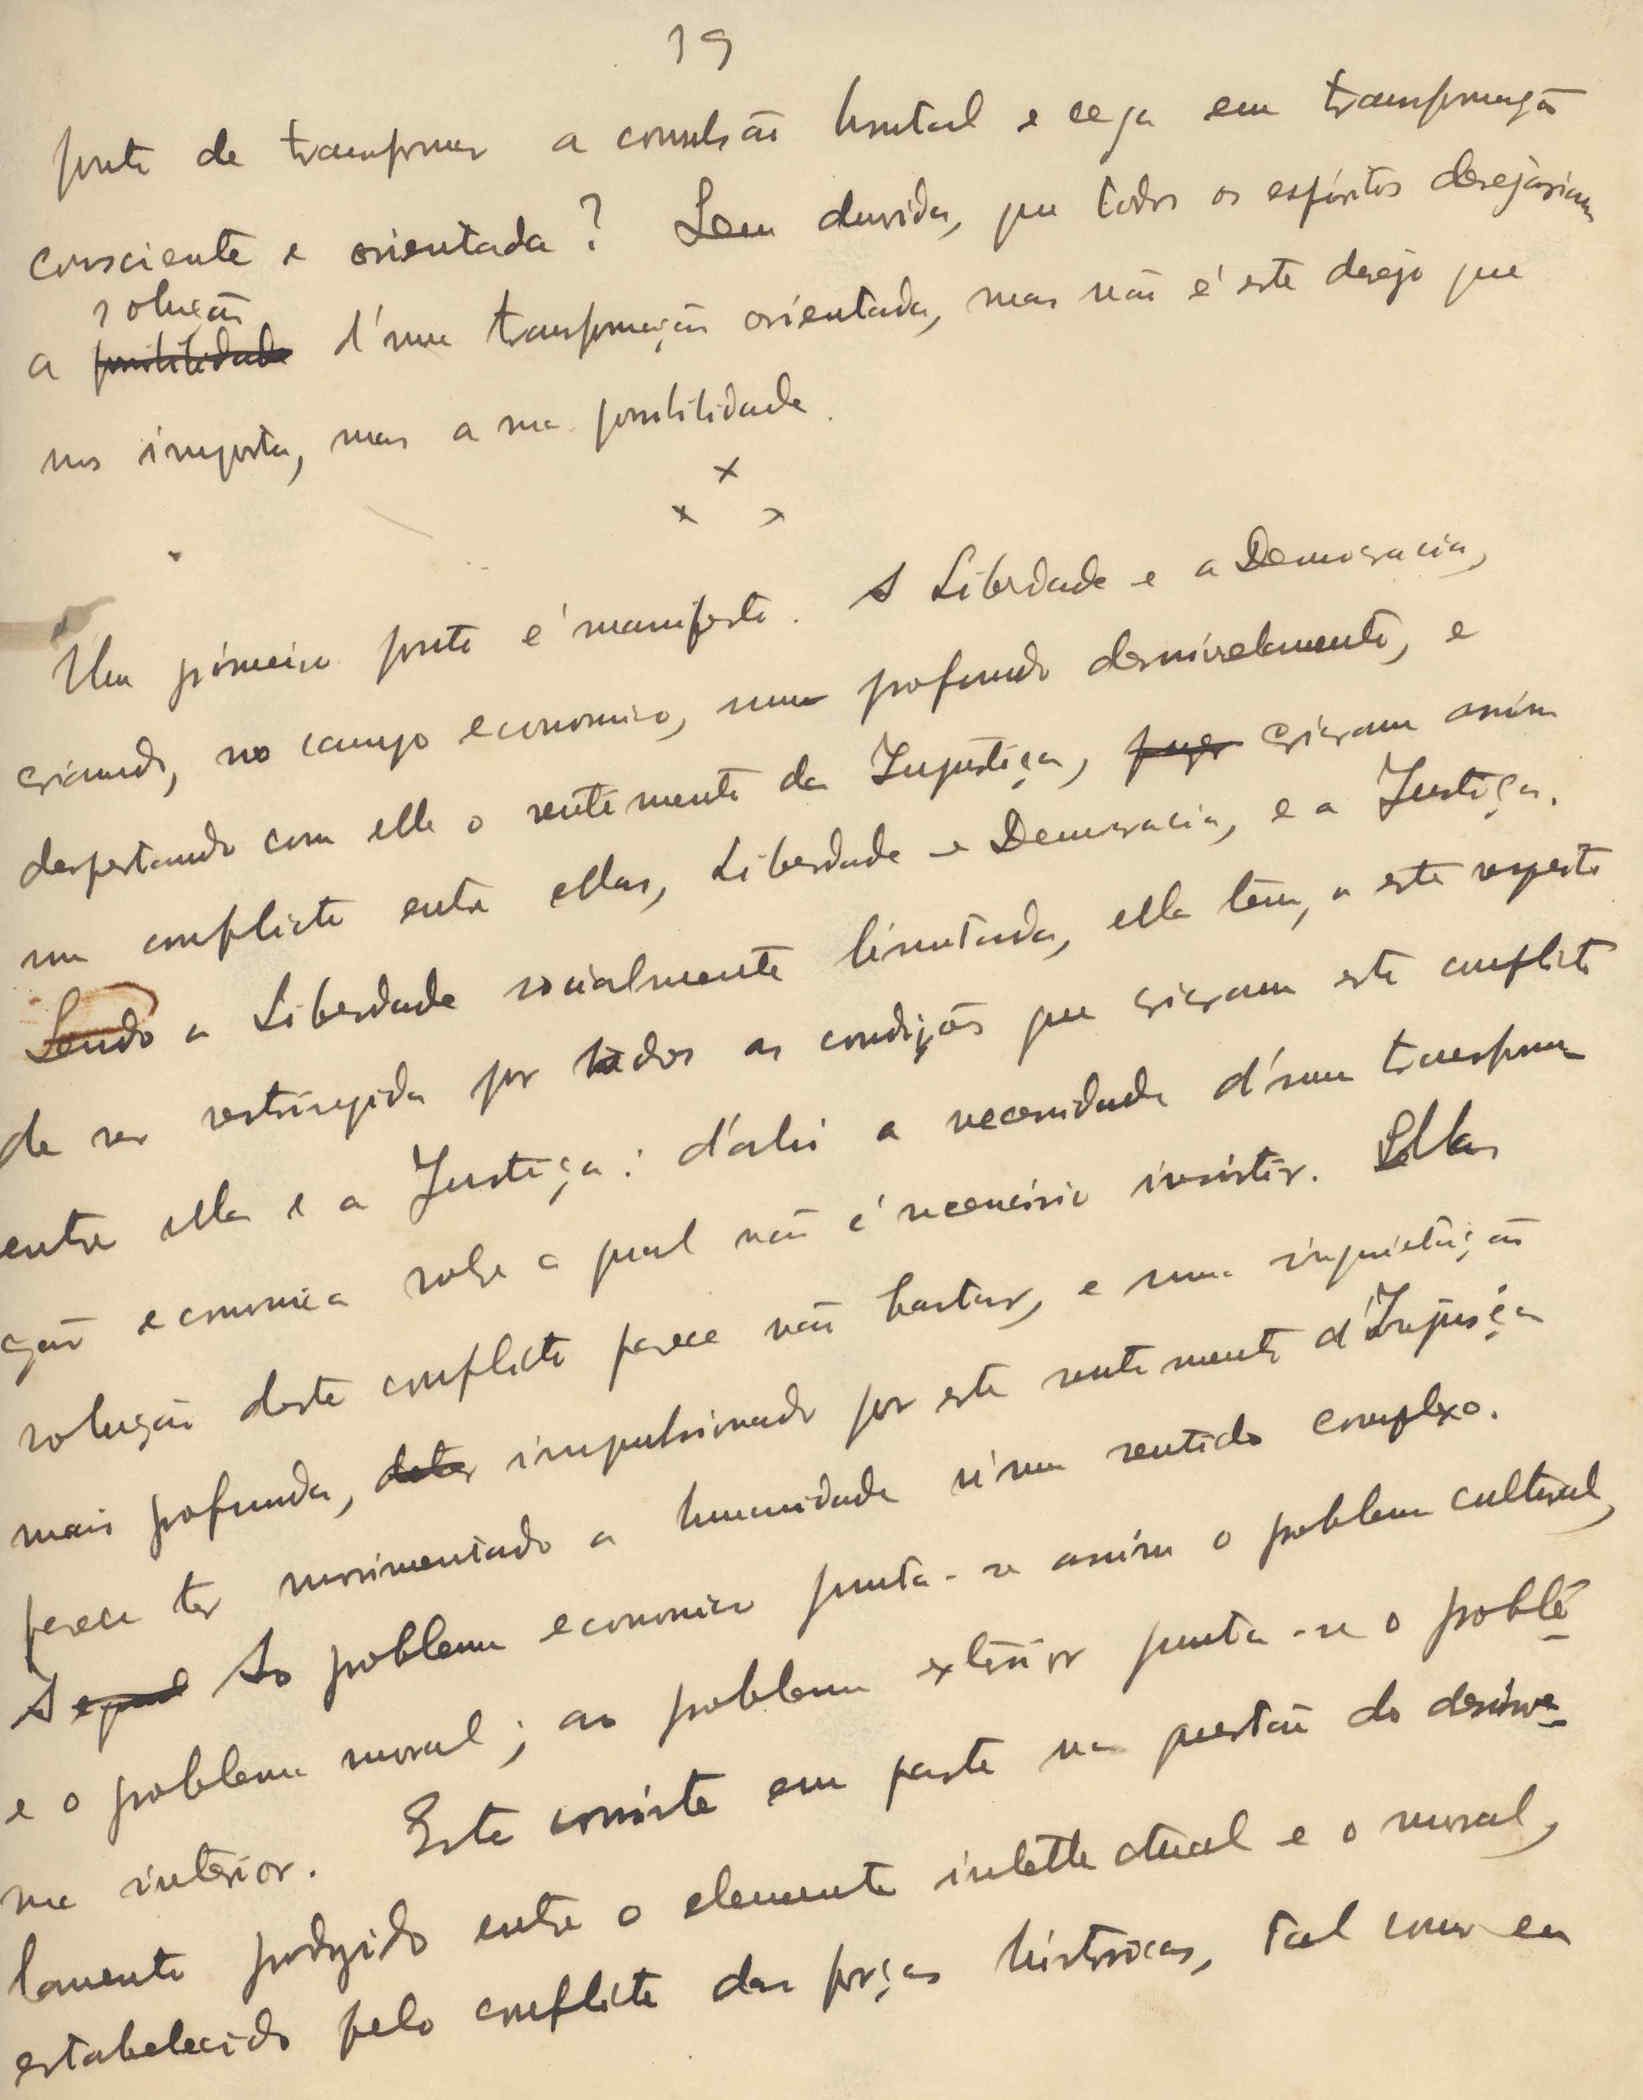 19
ponto de transformar a convulsão brutal e cega em transformação
consciente e orientada? Sem duvida, que todos os espiritos desejariam
solução
a possibilidade d'uma transformação orientada, mas não é este desejo que
nos importa, mas a sua possibilidade.
x
x x
Um primeiro ponto é manifesto. A Liberdade e a Democracia,
criando, no campo economico, um profundo desnivelamento, e
despertando com elle o sentimento da Injustiça, criaram assim
um conflicto entre ellas, Liberdade e Democracia, e a Justiça.
Sendo a Liberdade socialmente limitada, ella tem, a este respeito
de ser restringida por todas as condições que criaram este conflicto
entre ella e a Justiça: d'ahi a necessidade d'uma transforma
ção economica sobre a qual não é necessario insistir. Ellas
solução deste conflicto parece não bastar, e uma inquietação
mais profunda, impulsionado por este sentimento d'Injusiça
parece ter movimentado a humanidade n'um sentido complexo.
A equal Ao problema economico junta-se assim o problema cultural,
e o problema moral; ao problema exterior junta-se o problê-
ma interior. Este consiste em parte na questão do desnive-
lamento produzido entre o elemento intellectual e o moral,
estabelecido pelo conflicto das forças historicas, tal como eu